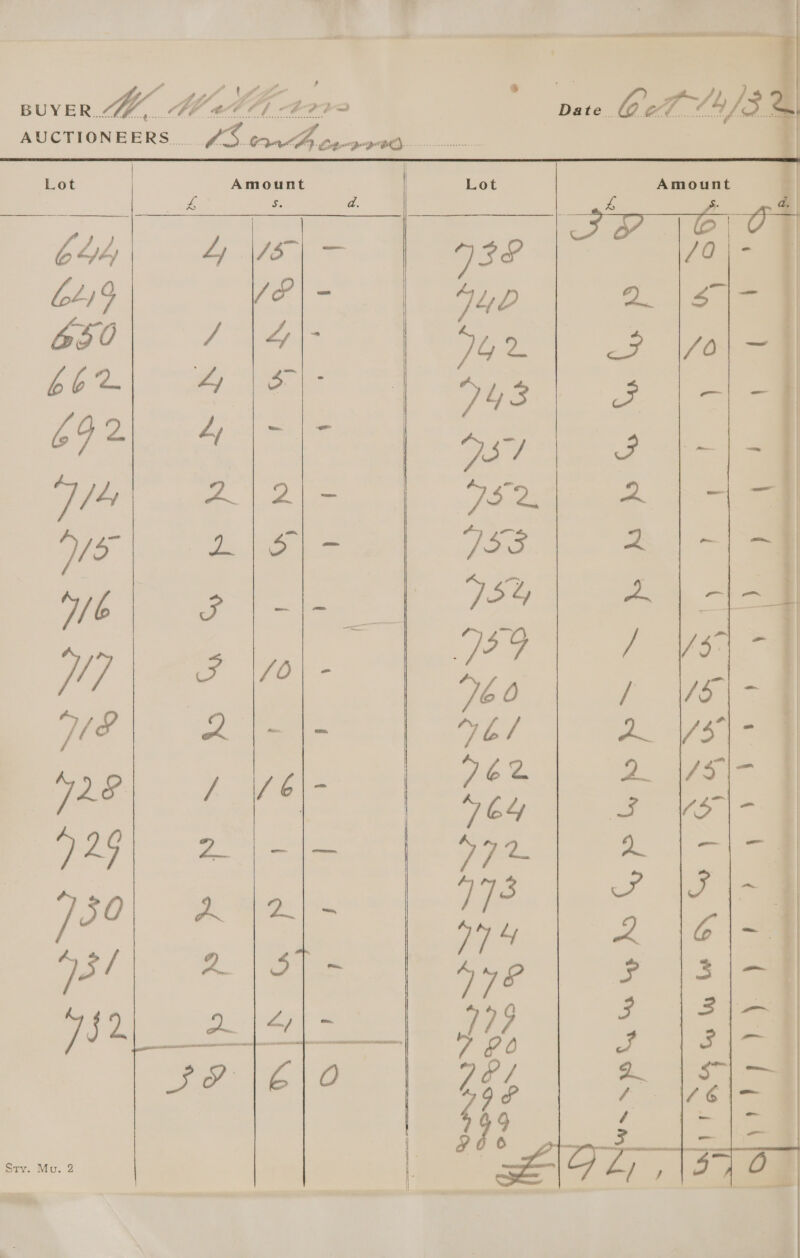 BUYER W. Williams
Date Oct 14/32
AUCTIONEERS Sotheby's
Lot Amount Lot Amount
£ s. d. £ s. d.
644 4 15 –
649 18 –
650 1 4 -
662 4 5 -
692 4 - -
714 2 2 –
715 2 5 –
716 3 – –
717 3 10 -
718 2 - -
728 1 16 –
729 2 – –
730 2 2 -
731 2 5 -
732 2 4 -
38 6 0
38 6 0
738 10 -
740 2 5 –
742 3 10 –
743 3 – –
751 3 – –
752 2 – –
753 2 - –
754 2 – –
759 1 15 -
760 1 15 –
761 2 15 -
762 2 15 –
764 3 15 -
772 2 – –
773 3 3 -
774 2 6 -
778 3 3 –
779 3 3 –
780 3 3 –
781 2 5 –
798 1 16 –
799 1 - -
800 3 – –
£94, 5, 0
Sty. Mu. 2